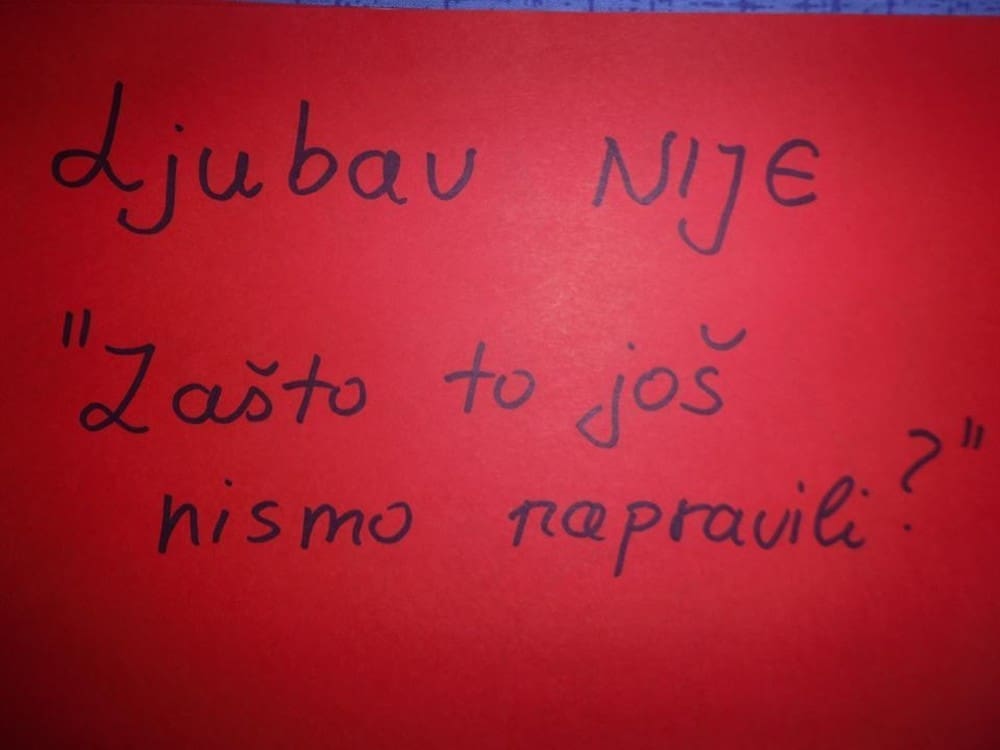 Ljubav NIJE
"Zašto to još
nismo napravili?"